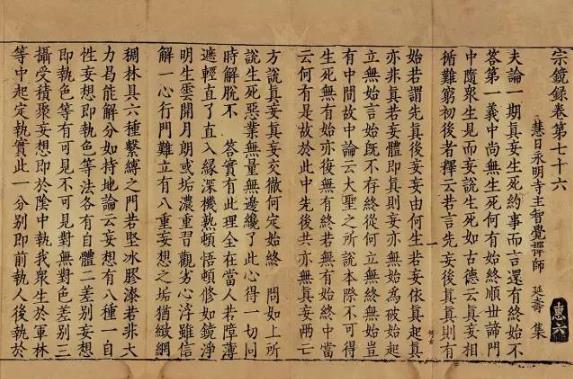 宗鏡録卷第七十六
慧日永明寺主智覺禪師 延壽 集
惠六
夫論一期真妄生死約事而言還有終始不
荅第一義中尚無生死何有始終順世諦門
中隨衆生見而妄說生死如古德云真妄相
循難窮初後者釋云若言先妄後真真則有
始若謂先真後妄妄由何生若妄依真起真
亦非真若妄體即真則妄亦無始為破始起
立無始言始既不存終從何立無終無始豈
有中間故中論云大聖之所說本際不可得
生死無有始亦復無有終若無有始終中當
云何有是故於此中先後共亦無真妄兩亡
方說真妄真妄交徹何定始終 問如上所
說生死惡業無量無邊纔了此心得一切同
時解脫不 荅實有此理全在當人若障薄
遮輕直了直入緣深機熟頓悟頓修如鏡淨
明生雲開月朗或垢濃重習觀劣心浮雖信
解一心行門難立有八重妄想之垢猶緻網
稠林具六種繫縛之門若堅冰膠漆若非大
力曷能解分如持地論云妄想有八種一自
性妄想即執色等法各有自體二差別妄想
即執色等有可見不可見對無對色差別三
攝受積聚妄想即於陰中執我衆生於軍林
等中起定執實此一分別即前執人後執於